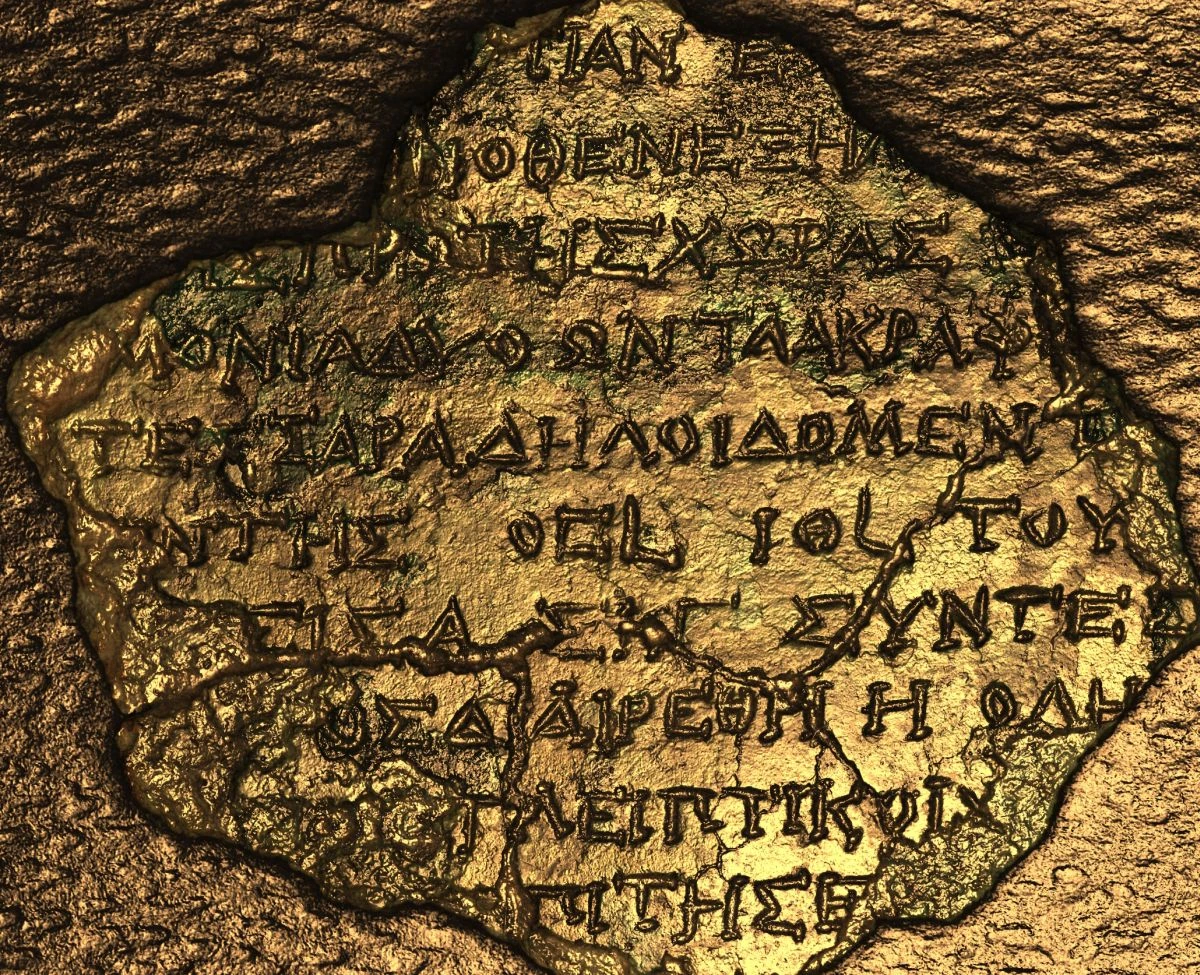 ΠΑΝ Ε
ΙΟΘΕΝΕΞΗΝ
ΙΣΠΡΩΤΗΣΧΩΡΑΣ
ΜΟΝΙΑΔΥΟΩΝΤΑΑΚΡΑΦ
ΤΕΣΣΑΡΑΔΗΛΟΙΔΟΜΕΝΤ
ΝΤΗΣ ΟϚL ΙΘL ΤΟΥ
ΕΙΣΙΣΑ ΣΚΓ ΣΥΝΤΕΣ
ΟΣΔΙΑΙΡΕΘΗ Η ΟΛΗ
ΕΓΛΕΙΠΤΙΚΟΙΧ
ΠΙΤΗΣΕ